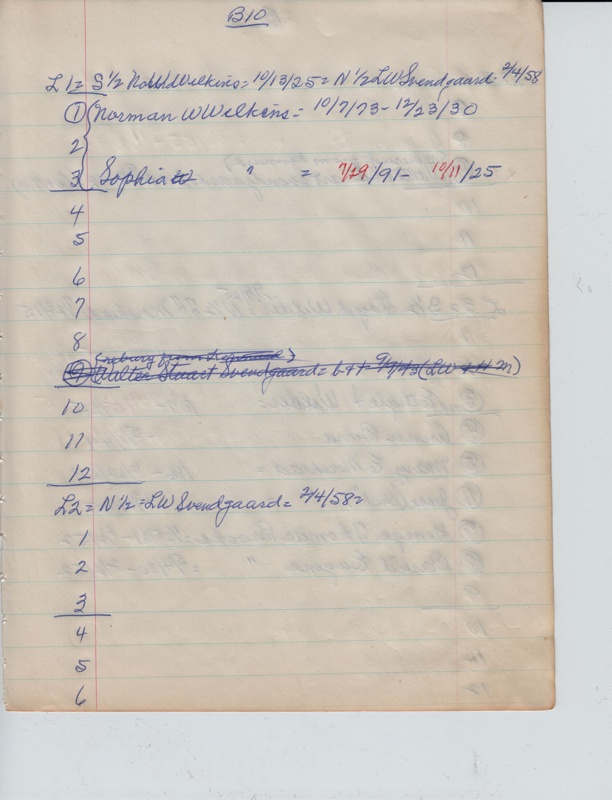 B10
L1 = S 1/2 Wilkins = 10/13/25 = N 1/2 LW Svendgaard - 2/4/58
1 Norman W Wilkins = 10/7/73 - 12/23/30
2
3 Sophia " = 7/29/91 - 10/11/25
4
5
6
7
8
(reburg from)
9 Walter Stuart Svendgaard = (LW + H M)
10
11
12
L2 = N 1/2 = LW Svendgaard = 2/4/58 =
1
2
3
4
5
6